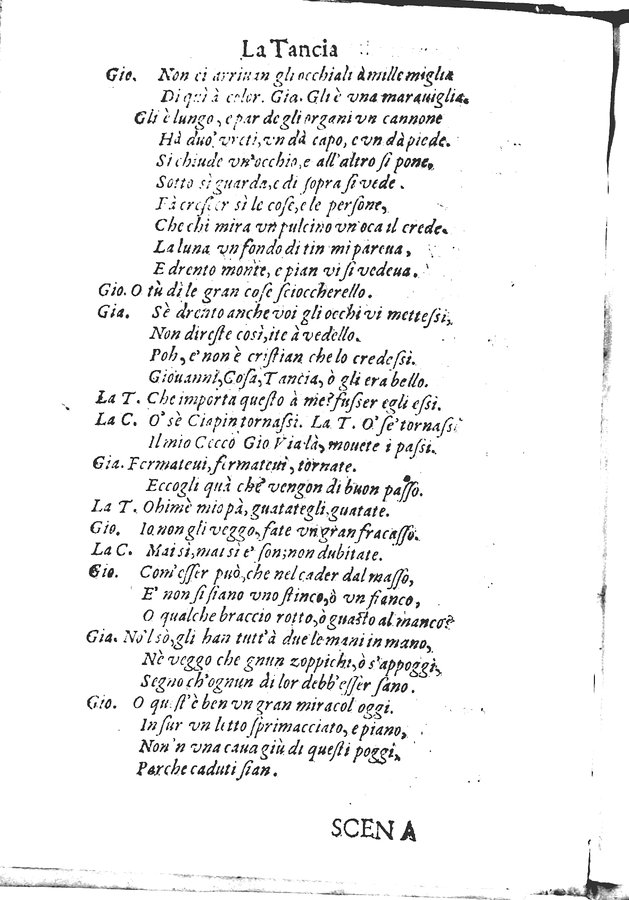 La Tancia
Gio. Non ci arriuan gli occhiali à mille miglia
Di quì à color. Gia. Gli è vna marauiglia.
Gli è lungo, e par de gli organi vn cannone
Hà duo' vetri, vn dà capo, e vn dà piede.
Si chiude vn'occhio, e all'altro si pone,
Sotto sì guarda, e di sopra si vede.
Fà crescer sì le cose, e le persone,
Che chi mira vn pulcino vn'oca il crede.
La luna vn fondo di tin mi pareua,
E drento monte, e pian vi si vedeua.
Gio. O tù di le gran cose scioccherello.
Gia. Sè drento anche voi gli occhi vi mettessi,
Non direste così, ite à vedello.
Poh, e' non è cristian che lo credessi.
Giouanni, Cosa, Tancia, ò gli era bello.
La T. Che importa questo à me? fusser egli essi.
La C. O' sè Ciapin tornassi. La T. O' se' tornassi
Il mio Cecco Gio Via là, mouete i passi.
Gia. Fermateui, fermateui, tornate.
Eccogli quà che vengon di buon passo.
La T. Ohimè mio pà, guatategli, guatate.
Gio. Io non gli veggo, fate vn gran fracasso.
La C. Mai sì, mai si e' son; non dubitate.
Gio. Com'esser può, che nel cader dal masso,
E' non si siano vno stinco, ò vn fianco,
O qualche braccio rotto, ò guasto al manco?
Gia. No'l sò, gli han tutt'à due le mani in mano,
Nè veggo che gnun zoppichi, ò s'appoggi,
Segno ch'ognun di lor debb'esser sano.
Gio. O quest'è ben vn gran miracol oggi.
In sur vn letto sprimacciato, e piano,
Non'n vna caua giù di questi poggi,
Par che caduti sian.
SCENA